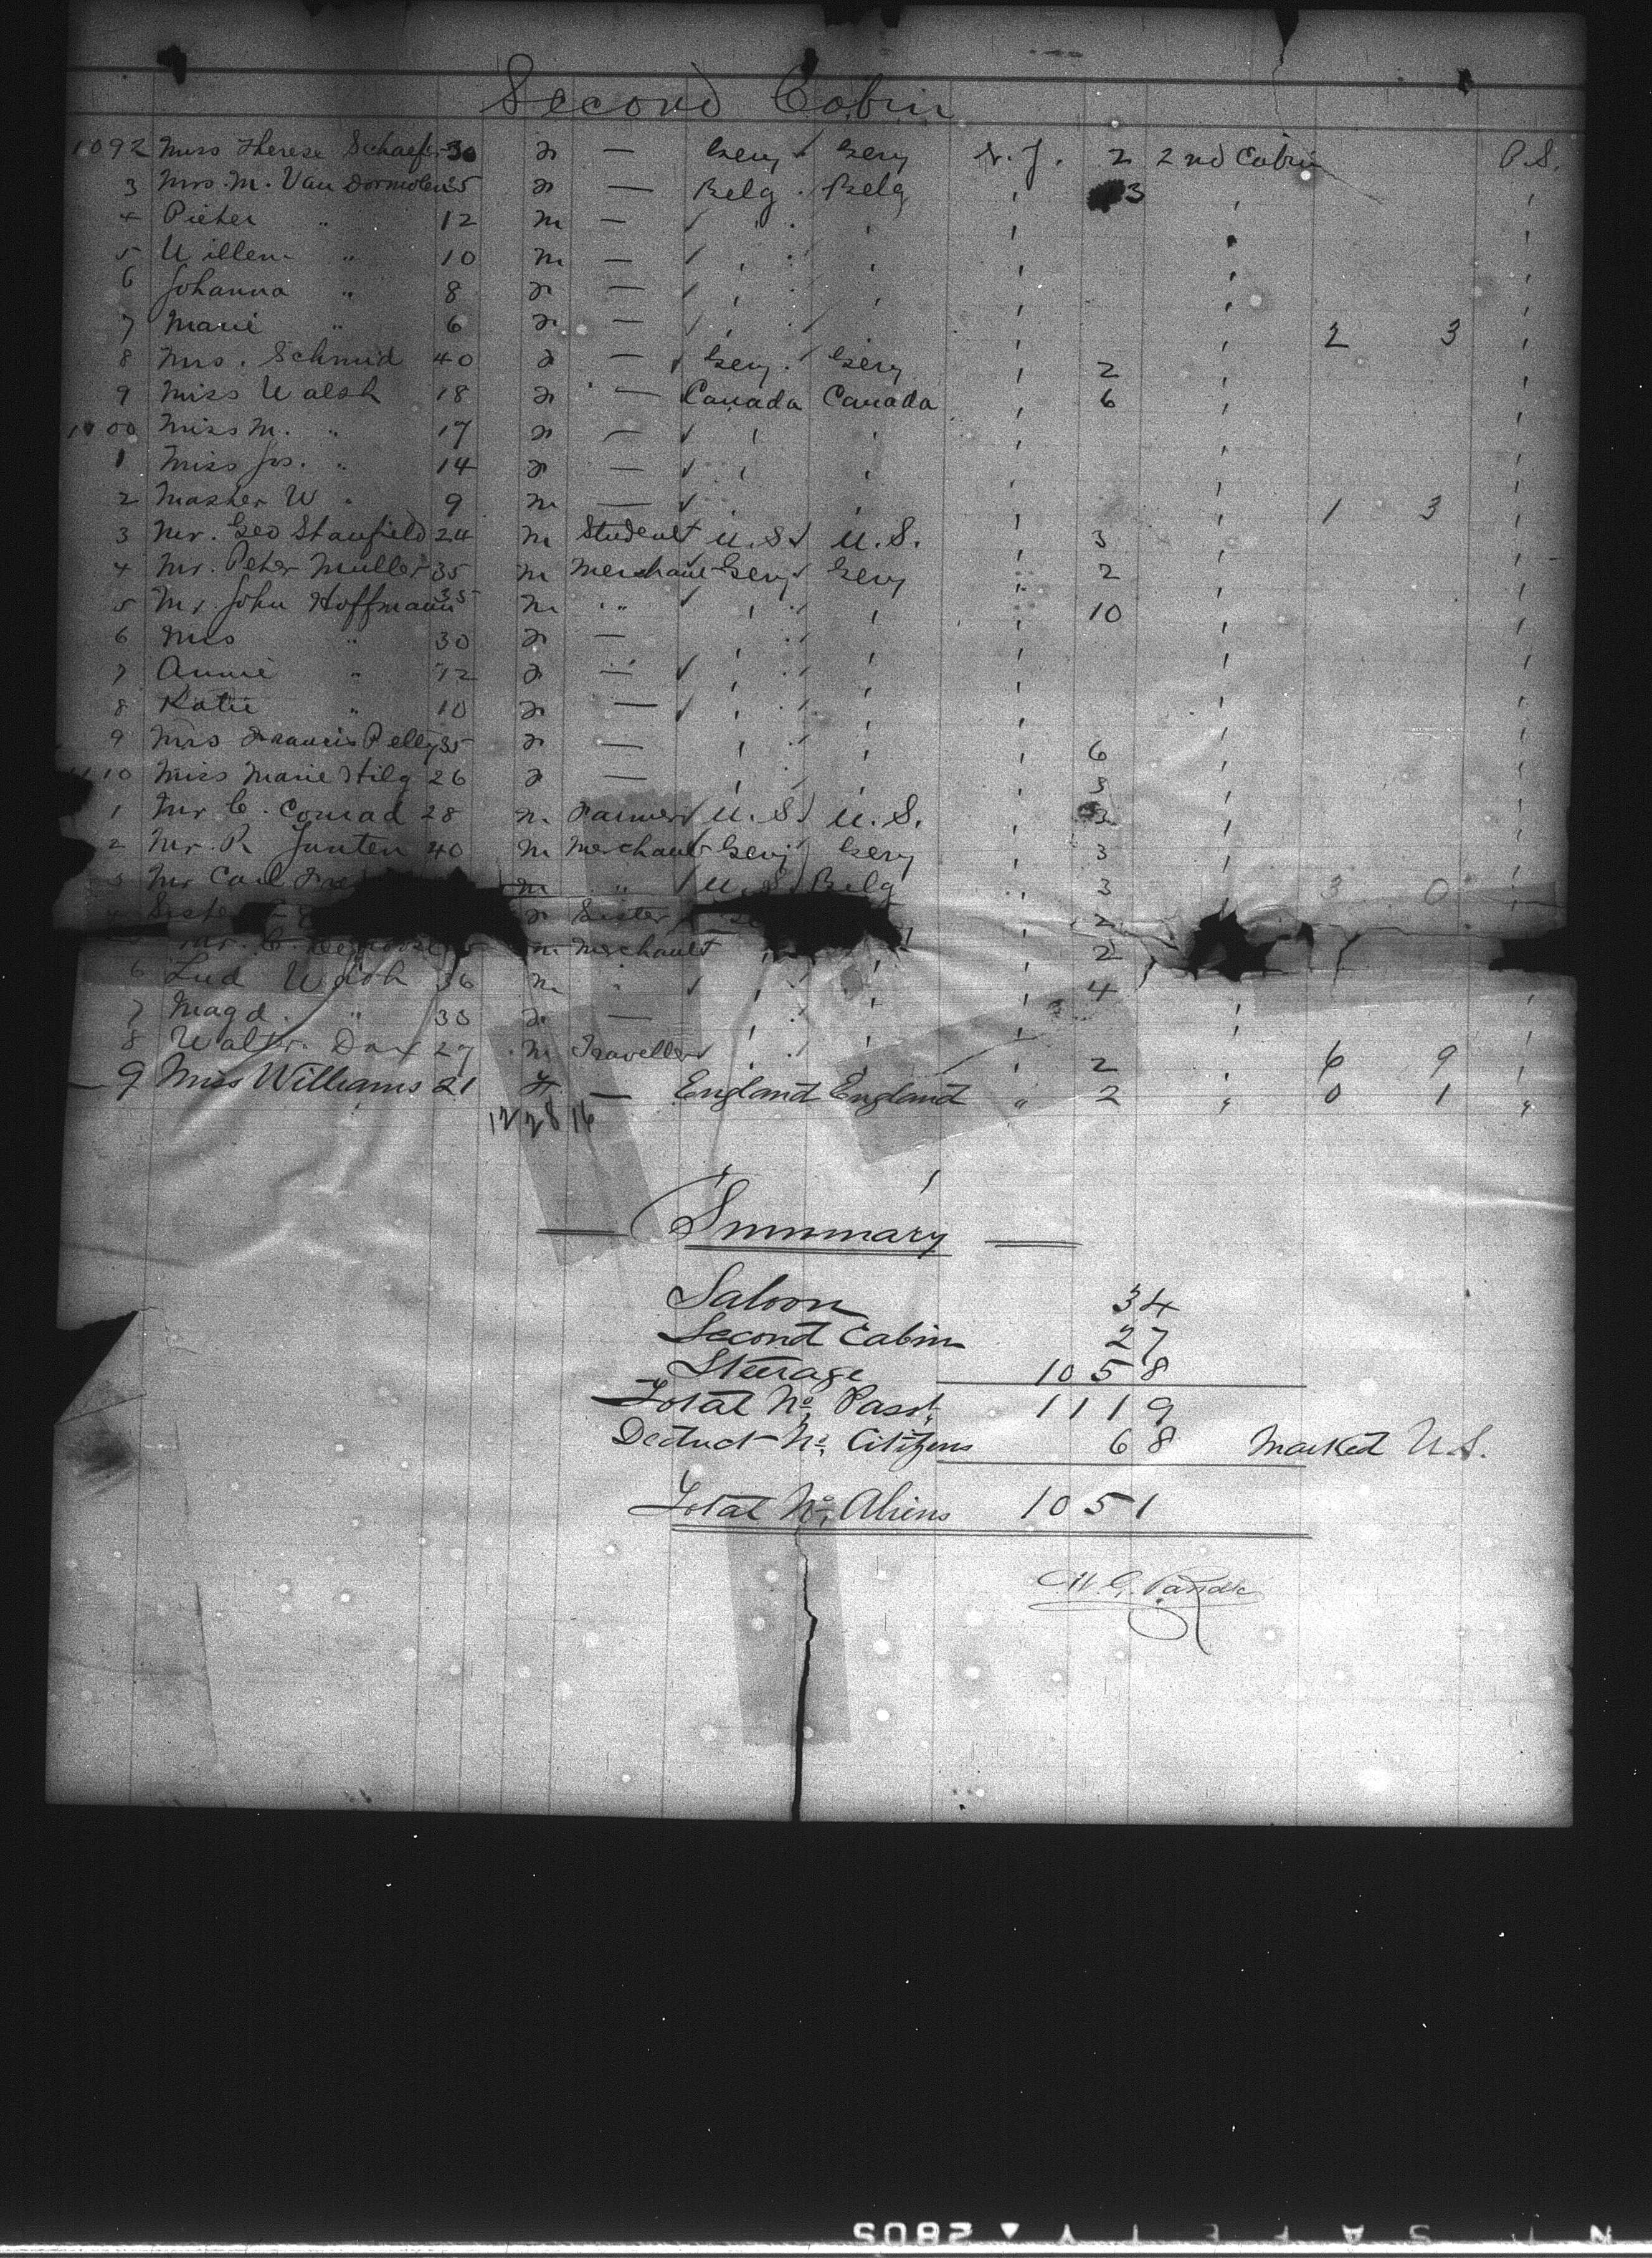 Second Cabin
1092 Miss Therese Schaefer 30 f — Gery Gery N.Y. 2 2nd Cabin P.S.
3 Mrs. M. Van Dormolen 35 f — Belg Belg ' 3 ' '
4 Pieter " 12 m — ' ' ' ' '
5 Willem " 10 m — ' ' ' ' '
6 Johanna " 8 f — ' ' ' ' '
7 Marie " 6 f — ' ' ' ' 2 3 '
8 Mrs. Schmid 40 f — Gery. Gery ' 2 ' '
9 Miss Walsh 18 f — Canada Canada ' 6 ' '
1100 Miss M. " 17 f — ' ' ' ' '
1 Miss Jos. " 14 f — ' ' ' ' '
2 Master W " 9 m — ' ' ' ' 1 3 '
3 Mr. Geo Stanfield 24 m Student U.S. U.S. ' 3 ' '
4 Mr. Peter Muller 35 m Merchant Gery Gery ' 2 ' '
5 Mr. John Hoffmann 35 m " ' ' ' 10 ' '
6 Mrs " 30 f — ' ' ' ' '
7 Annie " 12 f — ' ' ' ' '
8 Katie " 10 f — ' ' ' ' '
9 Mrs Francis Pelly 35 f — ' ' ' 6 ' '
1110 Miss Marie Hilg 26 f — ' ' ' 3 ' '
1 Mr C. Conrad 28 m Farmer U.S. U.S. ' 3 ' '
2 Mr. P. Junten 40 m Merchant Gery Gery ' 3 ' '
3 Mr Carl m " U.S. Belg ' 3 ' 3 0 '
Sister f Sister 2
Mr. C. m Merchant ' ' 2
6 Lud 36 m ' ' ' ' 4 ' '
7 Magd. " 33 f — ' ' ' ' '
8 Walter Dax 27 m Traveller ' ' ' 2 ' 6 9 '
9 Miss Williams 21 F. — England England " 2 " 0 1 "
12 28 16
Summary
Saloon 34
Second Cabin 27
Steerage 1058
Total No. Passt. 1119
Deduct No. Citizens 68 Marked U.S.
Total No. Aliens 1051